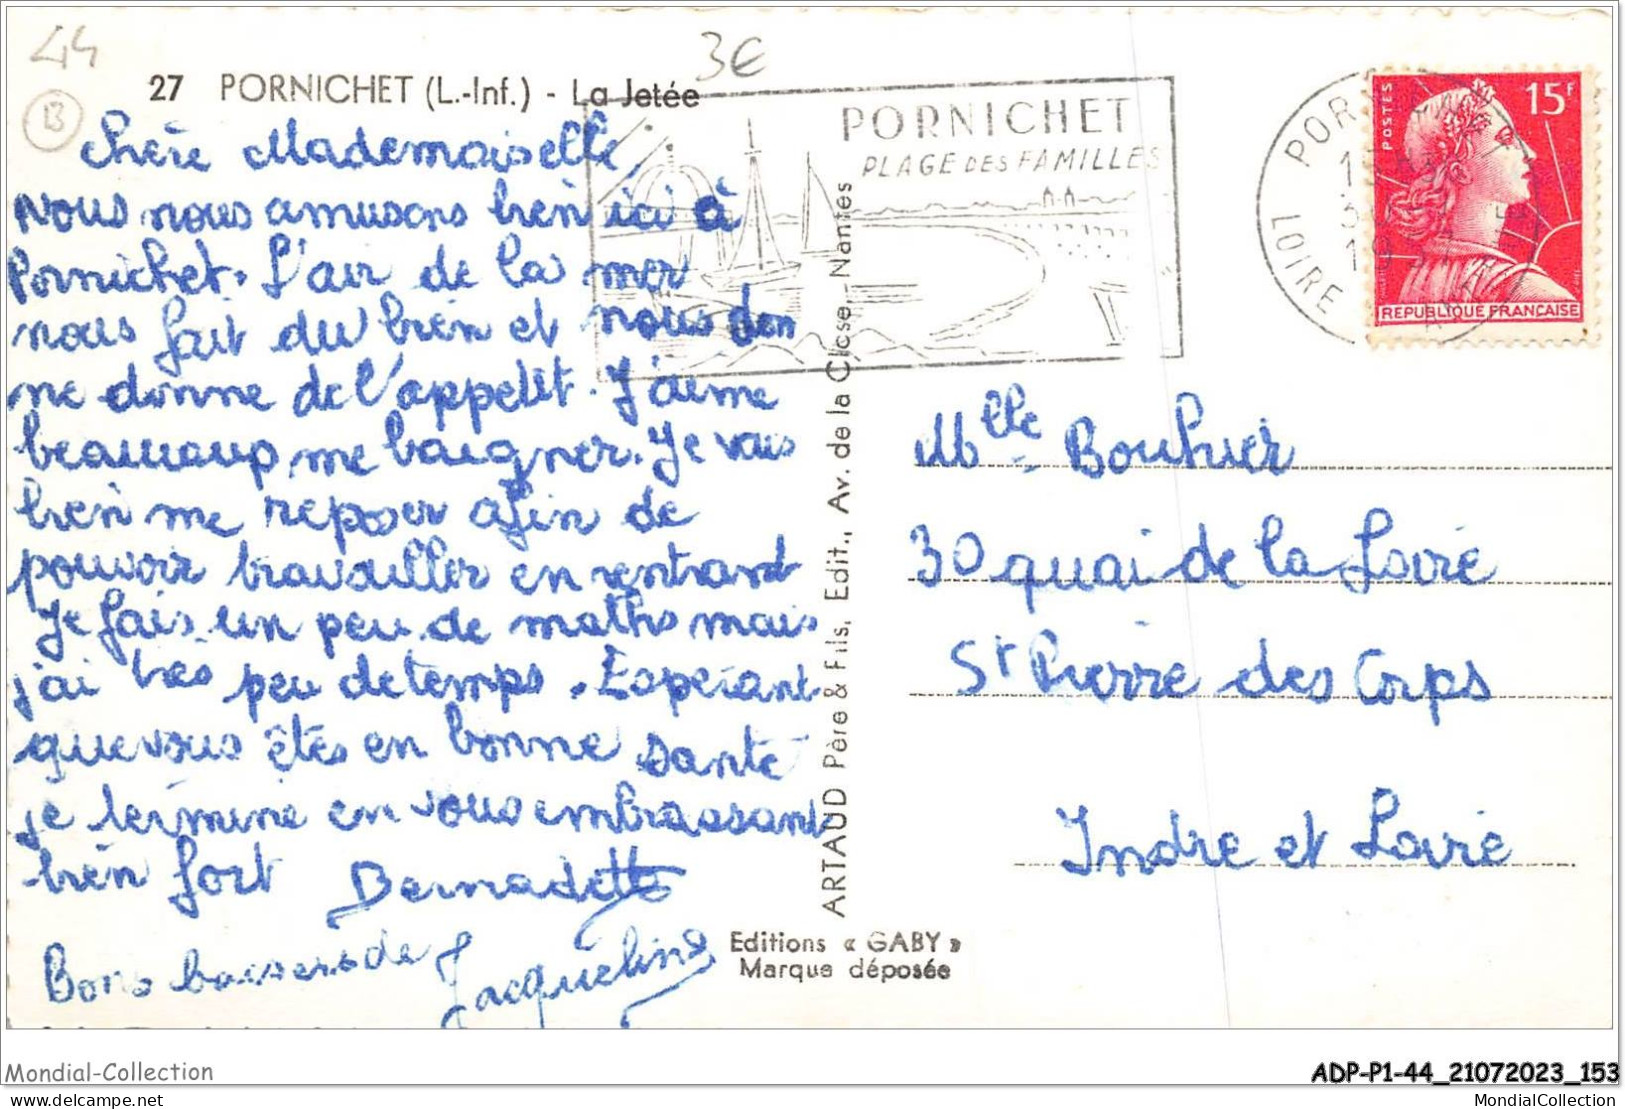 44
3€
B
27 PORNICHET (L.-Inf.) - La Jetée
PORNICHET
PLAGE DES FAMILLES
POR
LOIRE
POSTES
15F
REPUBLIQUE FRANÇAISE
Chère Mademoiselle,
Nous nous amusons bien ici à
Pornichet. L'air de la mer
nous fait du bien et nous don
ne donne de l'appétit. J'aime
beaucoup me baigner. Je vais
bien me reposer afin de
pouvoir travailler en rentrant
Je fais un peu de maths mais
j'ai très peu de temps. Espérant
que vous êtes en bonne santé
je termine en vous embrassant
bien fort Bernadette
Bons baisers de Jacqueline
ARTAUD Père & Fils, Edit., Av. de la Close, - Nantes
Editions « GABY »
Marque déposée
Mlle Bouhier
30 quai de la Loire
St Pierre des Corps
Indre et Loire
Mondial-Collection
ADP-P1-44_21072023_153
delcampe.net
MondialCollection